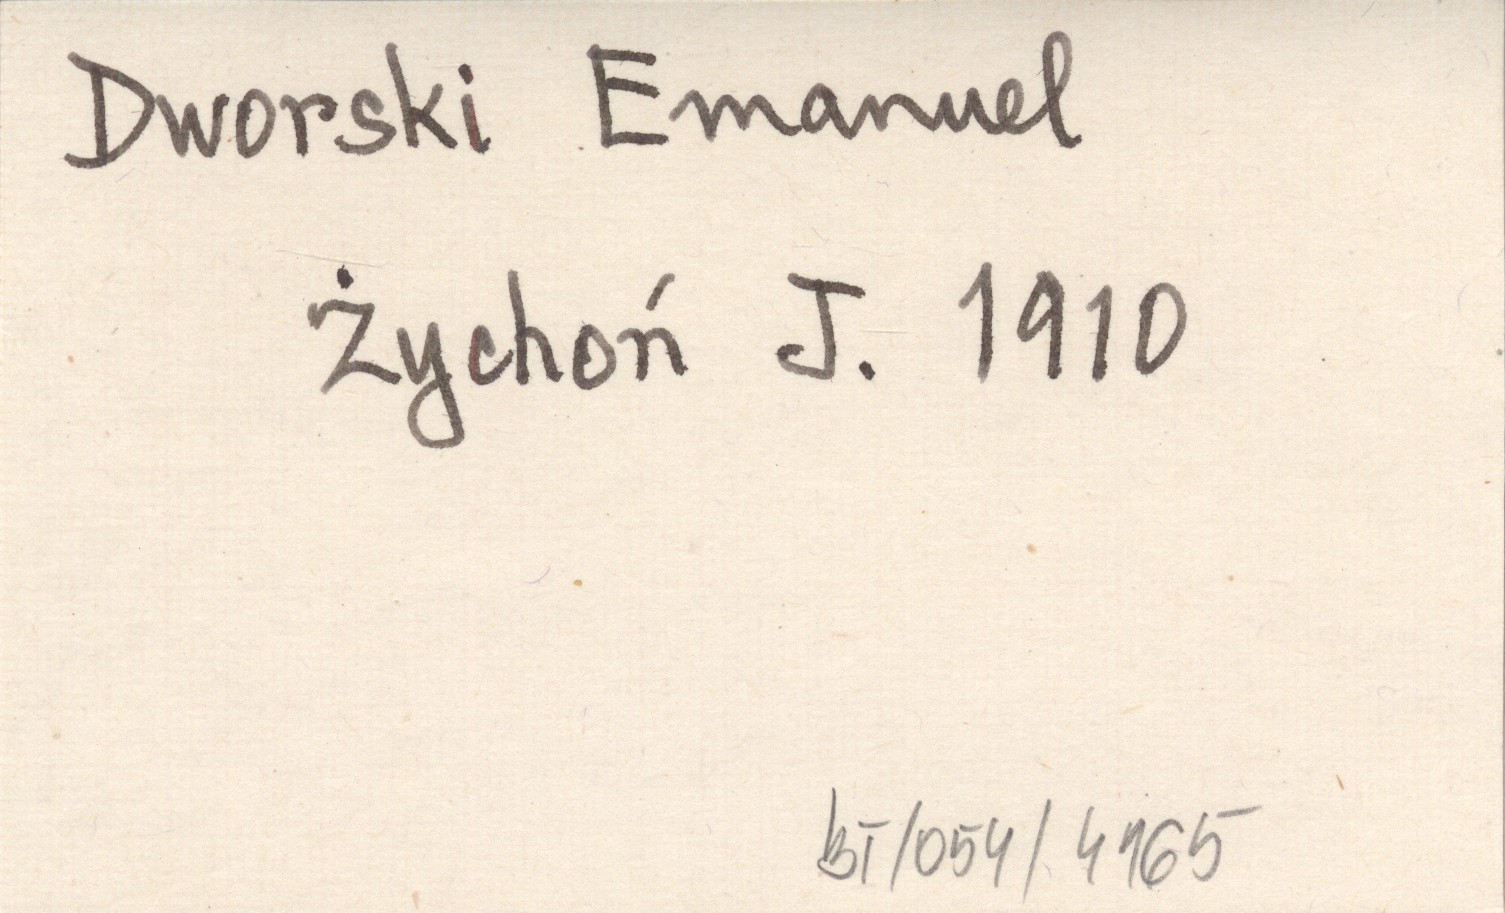 Dworski Emanuel
Żychoń J. 1910
BI/054/4165